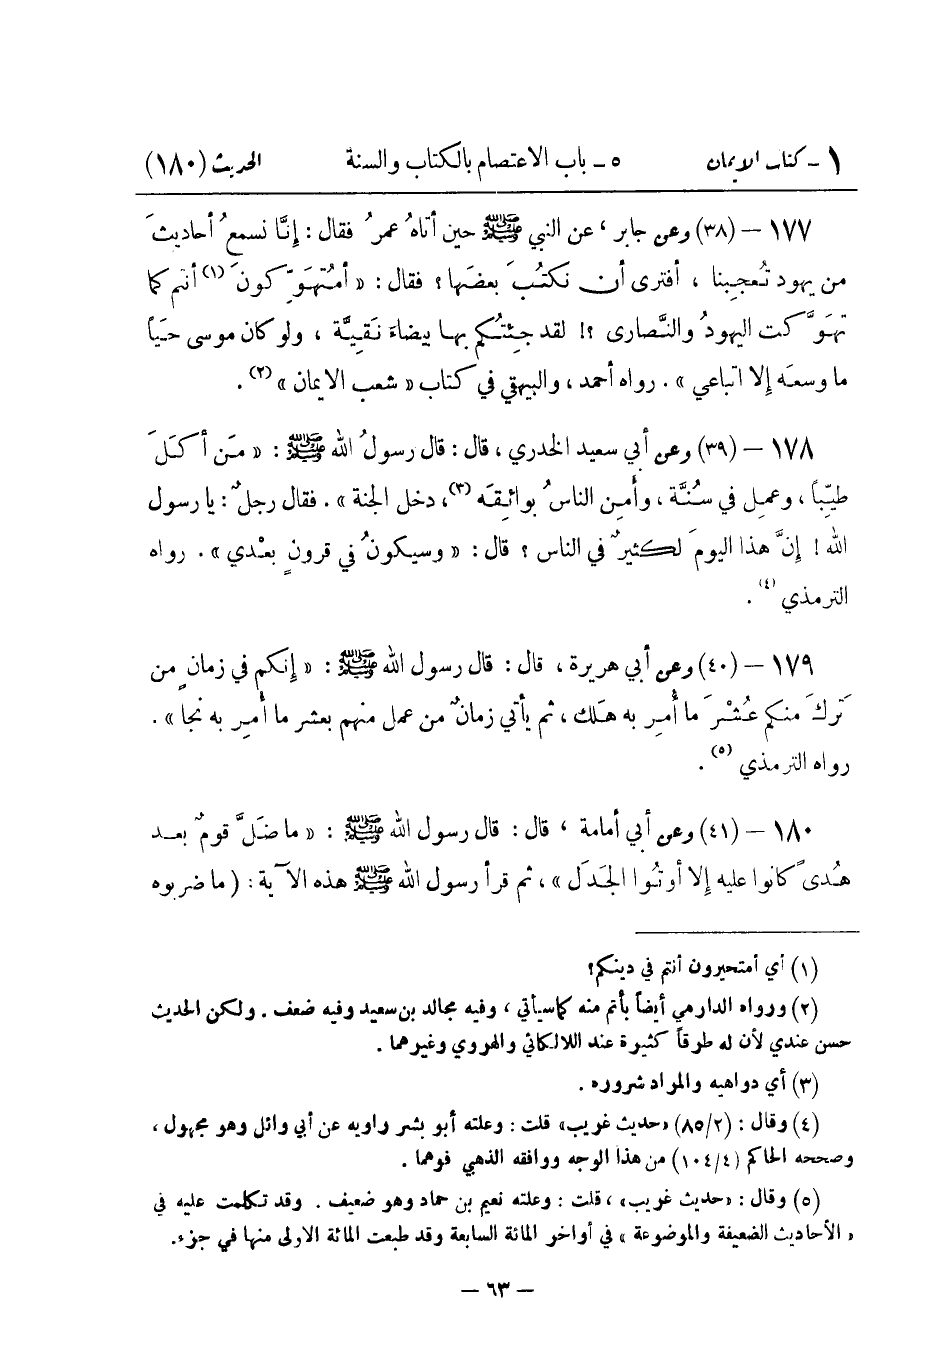 ١ - كتاب الايمان ٥ - باب الاعتصام بالكتاب والسنة الحديث (١٨٠)
١٧٧ - (٣٨) وعن جابر ، عن النبي ﷺ حين أتاهُ عمرُ فقال : إنَّا نسمعُ أحاديثَ
من يهود تُعجِبنا ، أفترى أن نكتُبَ بعضَها ؟ فقال : « أمُتَهوِّكونَ (١) أنتم كما
تهوَّكت اليهودُ والنَّصارى ؟! لقد جئتُكم بها بيضاءَ نَقيَّة ، ولو كان موسى حيَّاً
ما وسعَه إلا اتباعي » . رواه أحمد ، والبيهقي في كتاب « شعب الايمان » (٢) .
١٧٨ - (٣٩) وعن أبي سعيد الخدري ، قال : قال رسولُ الله ﷺ : « مَن أكلَ
طيّباً ، وعمِل في سُنَّة ، وأمِن الناسُ بوائقَه (٣)، دخل الجنة » . فقال رجلٌ : يا رسول
الله ! إنَّ هذا اليومَ لكثيرٌ في الناس ؟ قال : « وسيكونُ في قرونٍ بعْدي » . رواه
الترمذي (٤) .
١٧٩ - (٤٠) وعن أبي هريرة ، قال : قال رسول الله ﷺ : « إنكم في زمانٍ من
تَركَ منكم عُشْرَ ما أُمِر به هَلك ، ثم يأتي زمانٌ من عمل منهم بعشر ما أُمِر به نجا » .
رواه الترمذي (٥) .
١٨٠ - (٤١) وعن أبي أمامة ، قال : قال رسول الله ﷺ : « ما ضَلَّ قومٌ بعد
هُدىً كانوا عليه إلا أوتُوا الجَدَل » ، ثم قرأ رسول الله ﷺ هذه الآية : ( ما ضربوه
(١) أي أمتحيرون أنتم في دينكم؟
(٢) ورواه الدارمي أيضاً بأتم منه كما سيأتي ، وفيه مجالد بن سعيد وفيه ضعف . ولكن الحديث
حسن عندي لأن له طرقاً كثيرة عند اللالكائي والهروي وغيرهما .
(٣) أي دواهيه والمراد شروره .
(٤) وقال : (٨٥/٢) «حديث غريب» قلت : وعلته أبو بشر راويه عن أبي وائل وهو مجهول ،
وصححه الحاكم (١٠٤/٤) من هذا الوجه ووافقه الذهبي فوهما .
(٥) وقال : «حديث غريب» ، قلت : وعلته نعيم بن حماد وهو ضعيف . وقد تكلمت عليه في
« الأحاديث الضعيفة والموضوعة » في أواخر المائة السابعة وقد طبعت المائة الاولى منها في جزء .
- ٦٣ -